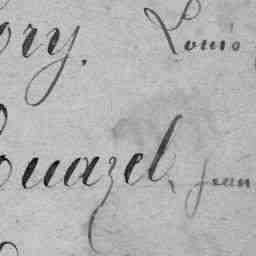 ory. Louis
ouazel, Jean